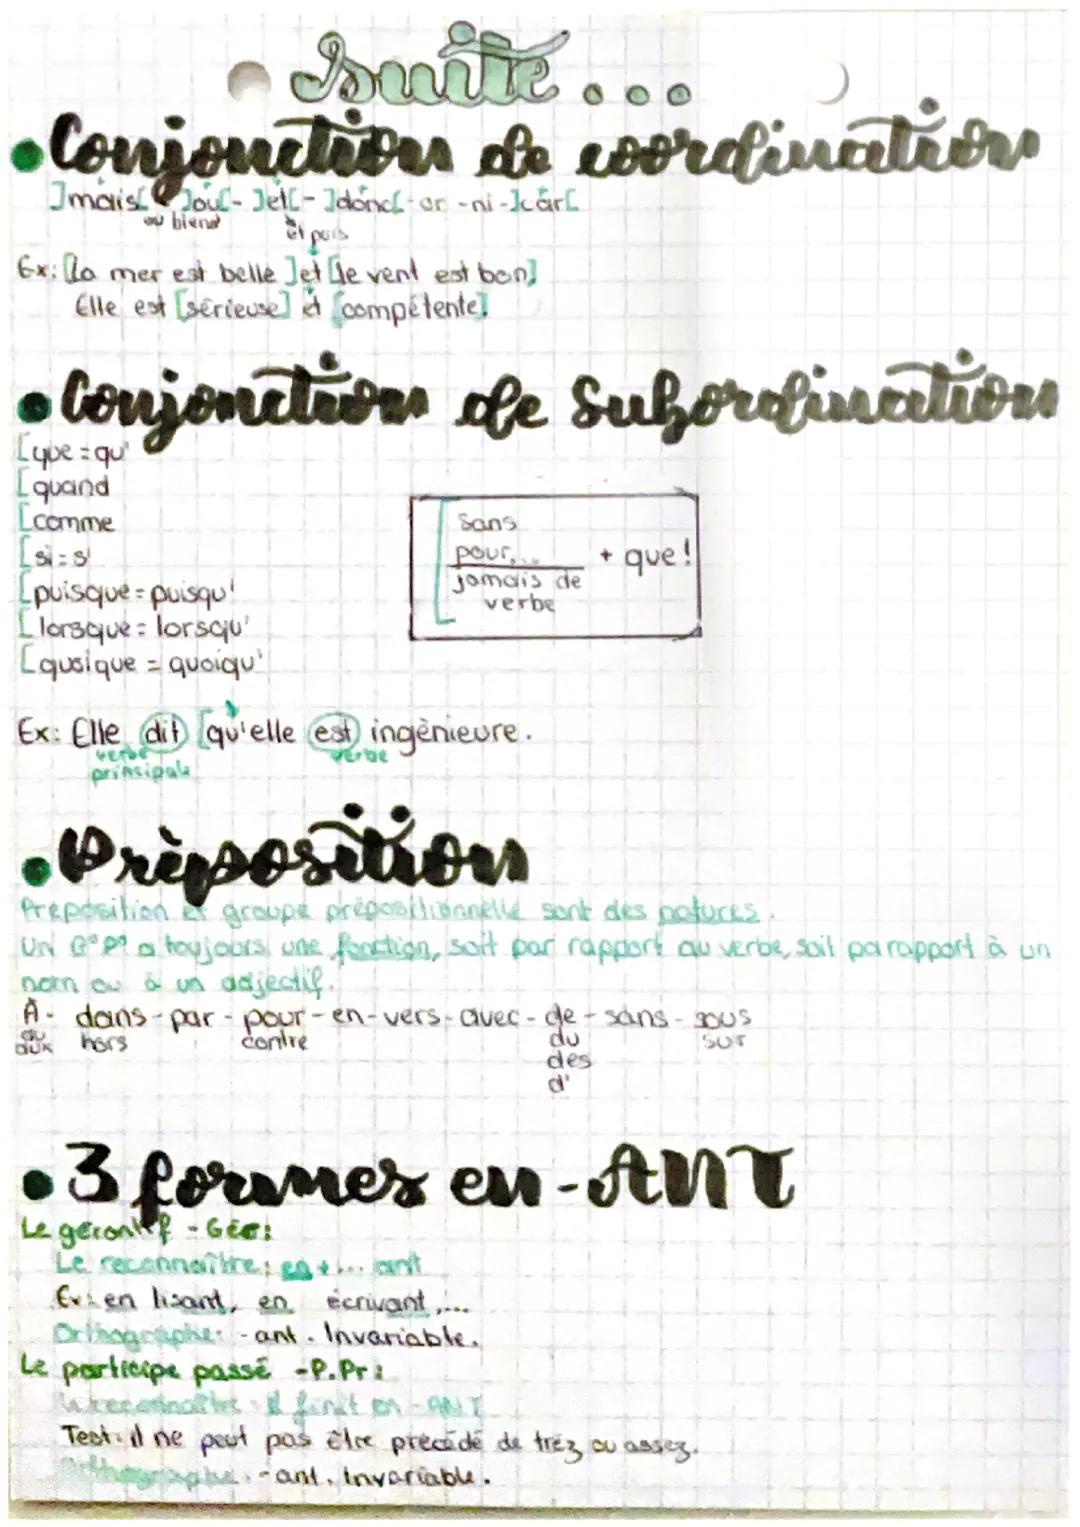 Suite ...
Conjonction de coordination
]mais[ ]ou[ - ]et[ - ]donc[ - or - ni - ]car[
ou bien et puis
Ex: [la mer est belle ]et [le vent est bon]
Elle est [sérieuse] et [compétente].
Conjonction de Subordination
[que = qu'
[quand
[comme
[si = s'
[puisque = puisqu'
[lorsque = lorsqu'
[quoique = quoiqu'
Sans
pour,...
jamais de
verbe
+ que !
Ex: Elle dit [qu'elle est ingènieure.
verbe verbe
principale
Prèposition
Preposition et groupe prépositionnelle sont des natures.
Un G°P° a toujours une fonction, soit par rapport au verbe, soit par rapport à un
nom ou à un adjectif.
À - dans - par - pour - en - vers - avec - de - sans - sous
au hors contre du sur
aux des
d'
3 formes en -ANT
Le gérontif - Gér:
Le reconnaître: en + ... ant
Ex: en lisant, en écrivant,...
Orthographe: -ant. Invariable.
Le participe passé -P.Pr:
Le reconnaître: il finit en -ANT
Test: il ne peut pas être précédé de trés ou assez.
Orthographe: -ant. Invariable.